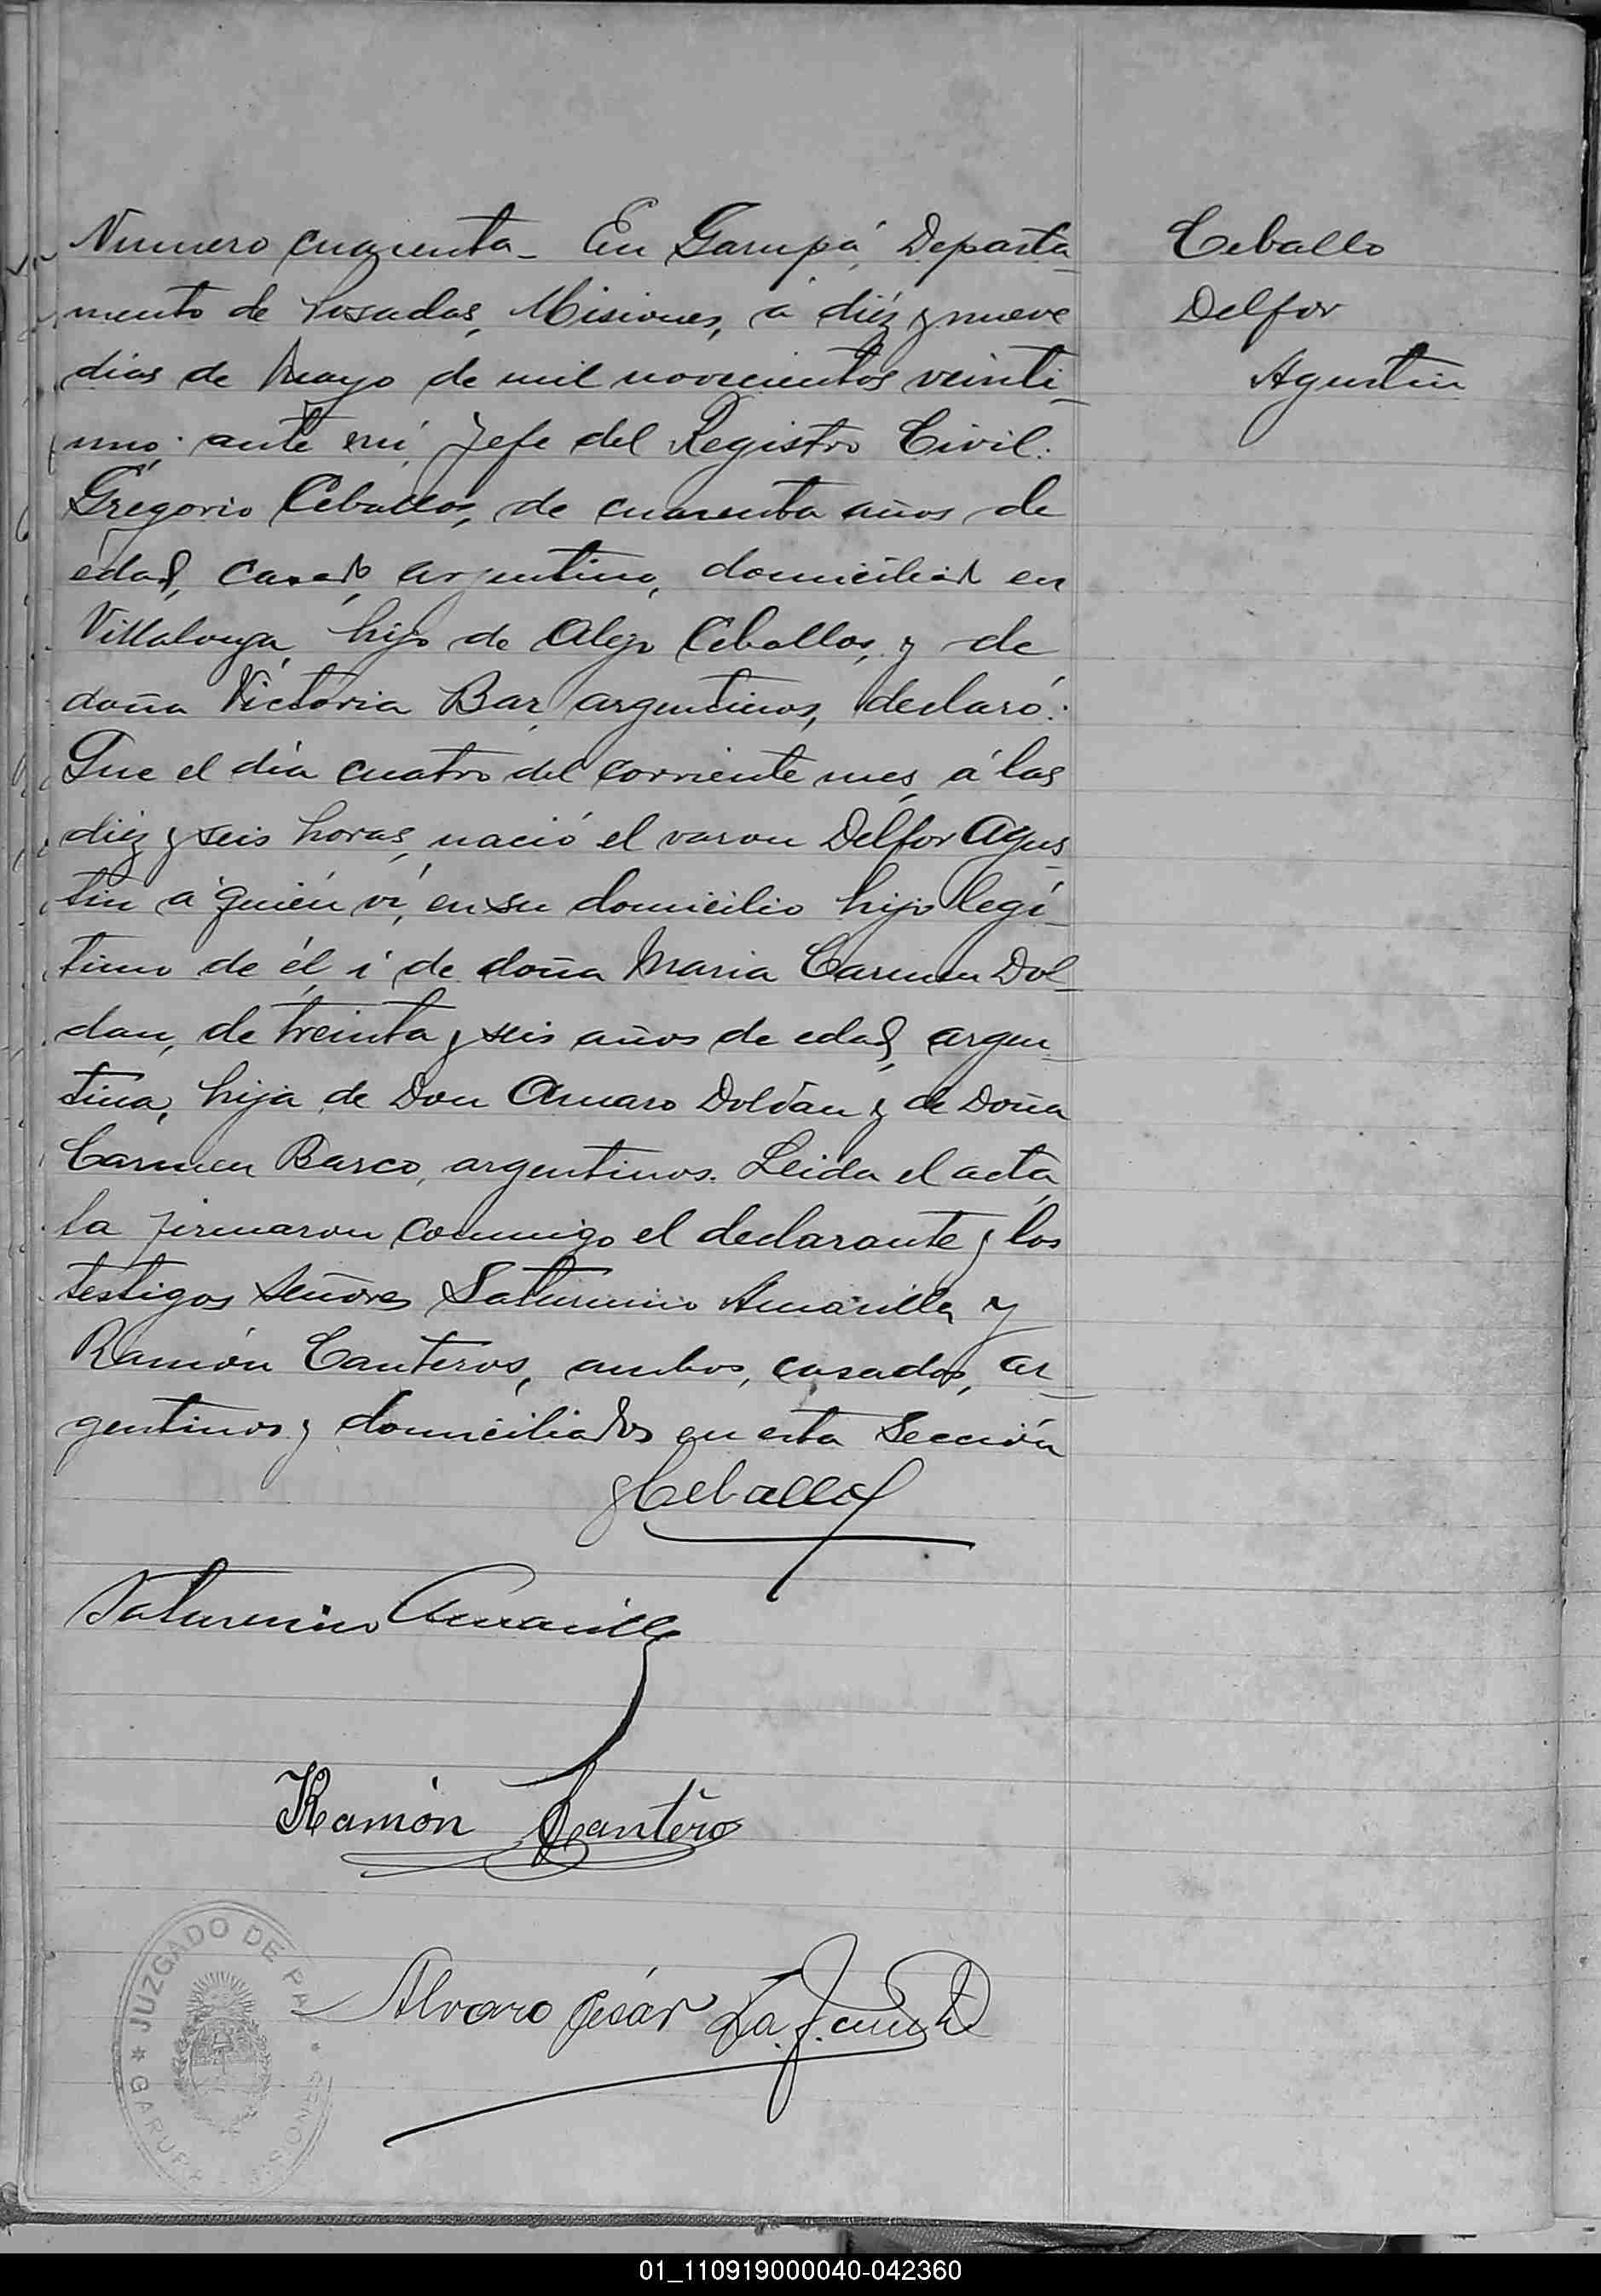 Numero cuarenta- En Garupá, Departa-
mento de Posadas, Misiones, á diéz y nueve
dias de Mayo de mil novecientos veinti-
uno, ante mí, Jefe del Registro Civil:
Gregorio Ceballos, de cuarenta años de
edad, casado, argentino, domiciliado en
Villalonga, hijo de Alejo Ceballos, y de
doña Victoria Bar, argentinos, declaró:
Que el dia cuatro del corriente mes, á las
diéz y seis horas, nació el varon Delfor Agus-
tin á quién ví, en su domicilio hijo legí-
timo de él, i de doña Maria Carmen Dol-
dan, de treinta y seis años de edad, argen-
tina, hija de Don Amaro Doldan y de Doña
Carmen Barco, argentinos. Leida el acta,
la firmaron conmigo el declarante y los
testigos señores Saturnino Amarilla y
Ramón Canteros, ambos, casados, ar-
gentinos y domiciliados en esta Sección
GCeballos
Saturnino Amarilla
Ramón Cantero
Alvaro César La
Ceballo
Delfor
Agustin
JUZGADO DE PA
GARUPA
01_110919000040-042360